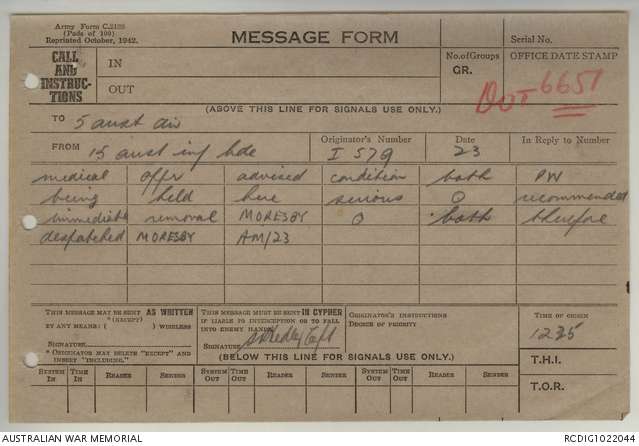 Army Form C.2128
(Pads of 100)
Reprinted October, 1942.
MESSAGE FORM
Serial No.
CALL AND INSTRUCTIONS
IN
OUT
No. of Groups
GR.
OFFICE DATE STAMP
6651
(ABOVE THIS LINE FOR SIGNALS USE ONLY.)
TO 5 aust div
FROM 15 aust inf bde
Originator's Number
I 579
Date
23
In Reply to Number
medical offr advised condition both PW
being held here serious O recommended
immediate removal MORESBY O both therefore
despatched MORESBY AM/23
THIS MESSAGE MAY BE SENT AS WRITTEN
*(EXCEPT)
BY ANY MEANS: ( ) WIRELESS
SIGNATURE
*ORIGINATOR MAY DELETE "EXCEPT" AND
INSERT "INCLUDING."
THIS MESSAGE MUST BE SENT IN CYPHER
IF LIABLE TO INTERCEPTION OR TO FALL
INTO ENEMY HANDS.
SIGNATURE Hedley Capt
ORIGINATOR'S INSTRUCTIONS
DEGREE OF PRIORITY
TIME OF ORIGIN
1235
(BELOW THIS LINE FOR SIGNALS USE ONLY.)
T.H.I.
SYSTEM IN
TIME IN
READER
SENDER
SYSTEM OUT
TIME OUT
READER
SENDER
SYSTEM OUT
TIME OUT
READER
SENDER
T.O.R.
AUSTRALIAN WAR MEMORIAL
RCDIG1022044